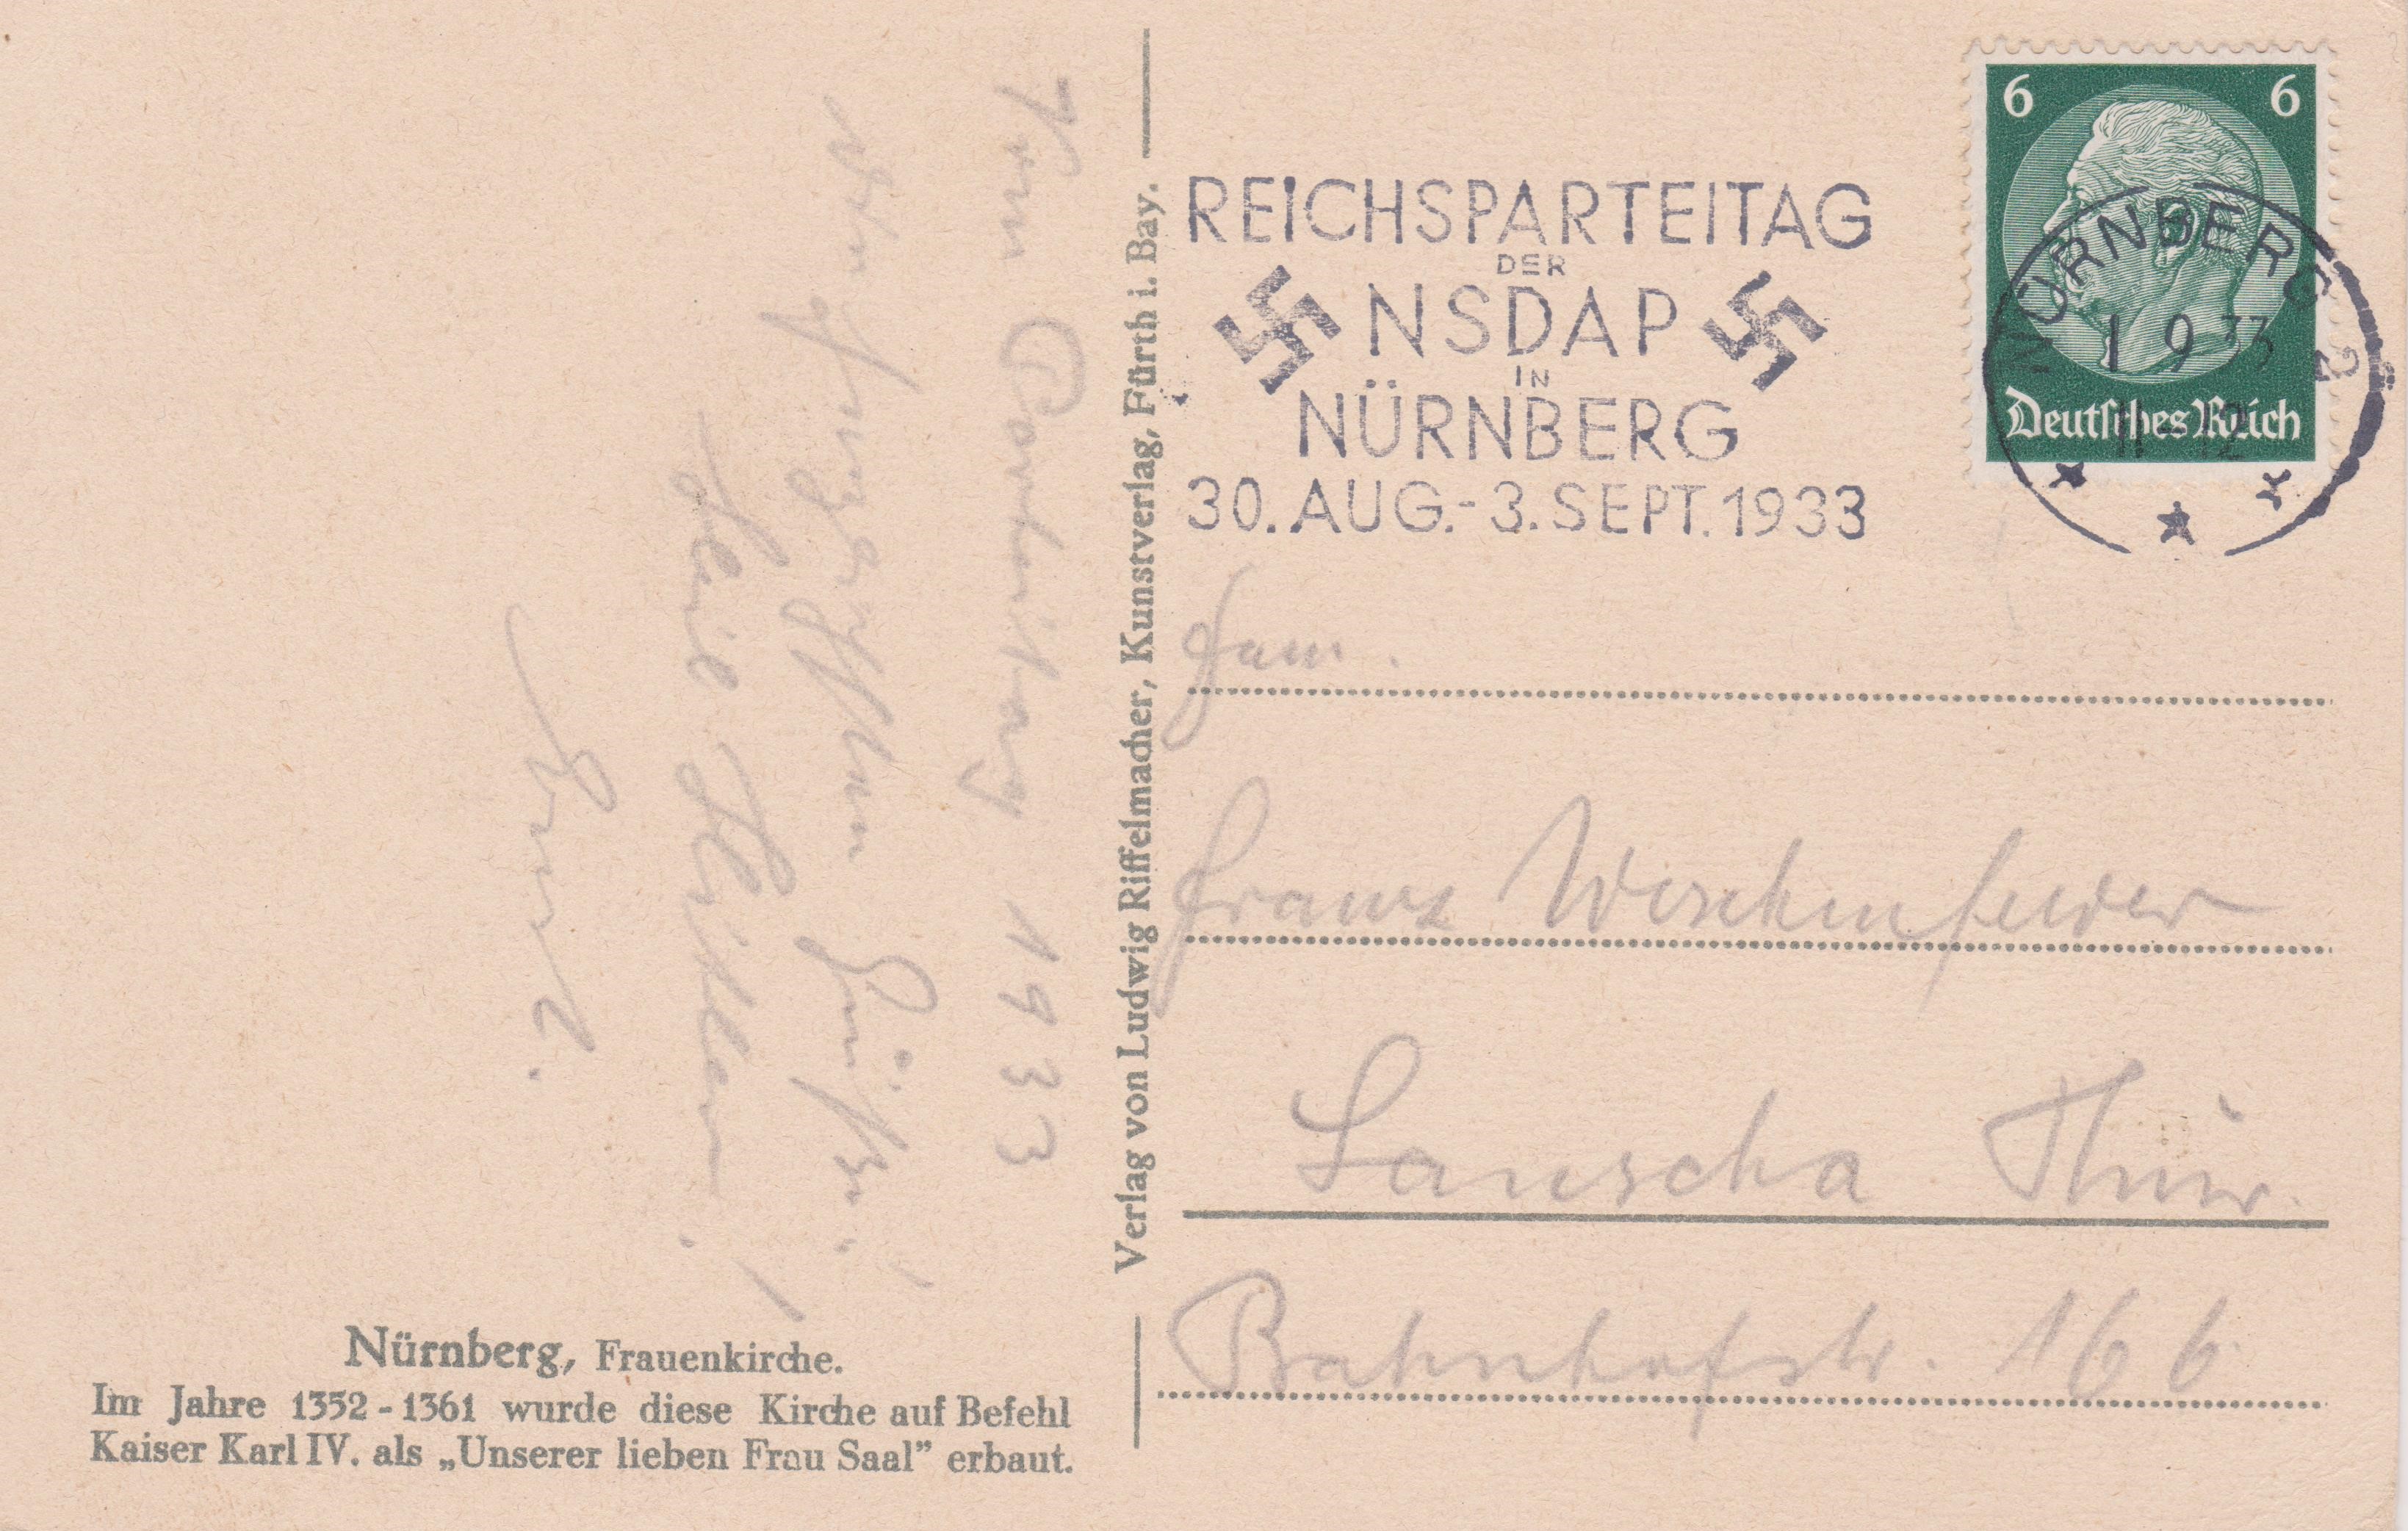 Vom Parteitag 1933
die herzlichsten Grüße.
Heil Hitler!
Ernst.
Nürnberg, Frauenkirche.
Im Jahre 1352 - 1361 wurde diese Kirche auf Befehl
Kaiser Karl IV. als „Unserer lieben Frau Saal” erbaut.
Verlag von Ludwig Riffelmacher, Kunstverlag, Fürth i. Bay.
REICHSPARTEITAG
DER
NSDAP
IN
NÜRNBERG
30. AUG. - 3. SEPT. 1933
6 6
Deutsches Reich
NÜRNBERG 2
1 9 33
11-12
Fam.
Franz Weschenfelder
Lauscha Thür.
Bahnhofstr. 16 b